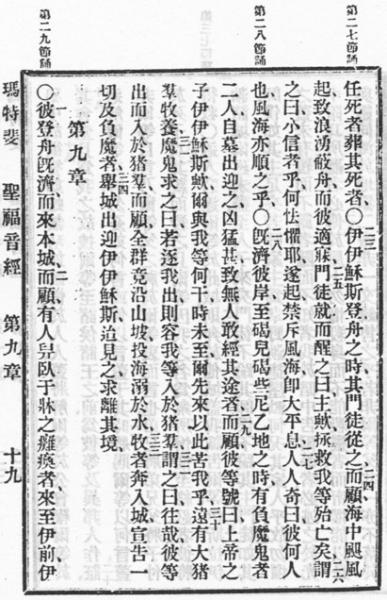 第二七節誦
第二八節誦
第二九節誦
任死者葬其死者○二三伊伊穌斯登舟之時其門徒從之二四而顧海中颶風
起致浪湧蔽舟而彼適寐二五門徒就而醒之曰主歟拯救我等殆亡矣二六謂
之曰小信者乎何怯懼耶遂起禁斥風海卽大平息二七人人奇曰彼何人
也風海亦順之乎○二八旣濟彼岸至碣兒碣些尼乙地之時有負魔鬼者
二人自墓出迎之凶猛甚致無人敢經其途者二九而顧彼等號曰上帝之
子伊伊穌斯歟爾與我等何干時未至爾先來以此苦我乎三十遠有大猪
羣牧養三一魔鬼求之曰若逐我出則容我等入於猪羣三二謂之曰往哉彼等
出而入於猪羣而顧全群竟沿山坡投海溺於水三三牧者奔入城宣告一
切及負魔者三四舉城出迎伊伊穌斯迨見之求離其境
第九章
○一彼登舟旣濟而來本城二而顧有人舁臥于牀之癱瘓者來至伊前伊
瑪特斐 聖福音經 第九章 十九